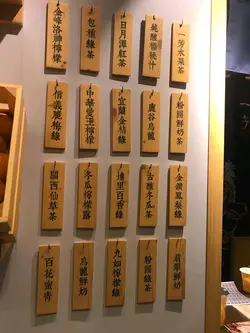 一芳水果茶
純釀楊桃汁
日月潭紅茶
包種綠茶
金峰洛神檸檬
粉圓鮮奶茶
鹿谷烏龍
宜蘭金桔綠
中華愛玉檸檬
信義脆梅綠
金鑽鳳梨綠
古雅冬瓜茶
埔里百香綠
冬瓜檸檬露
關西仙草茶
翡翠鮮奶
粉圓綠茶
九如檸檬綠
烏龍鮮奶
百花蜜青